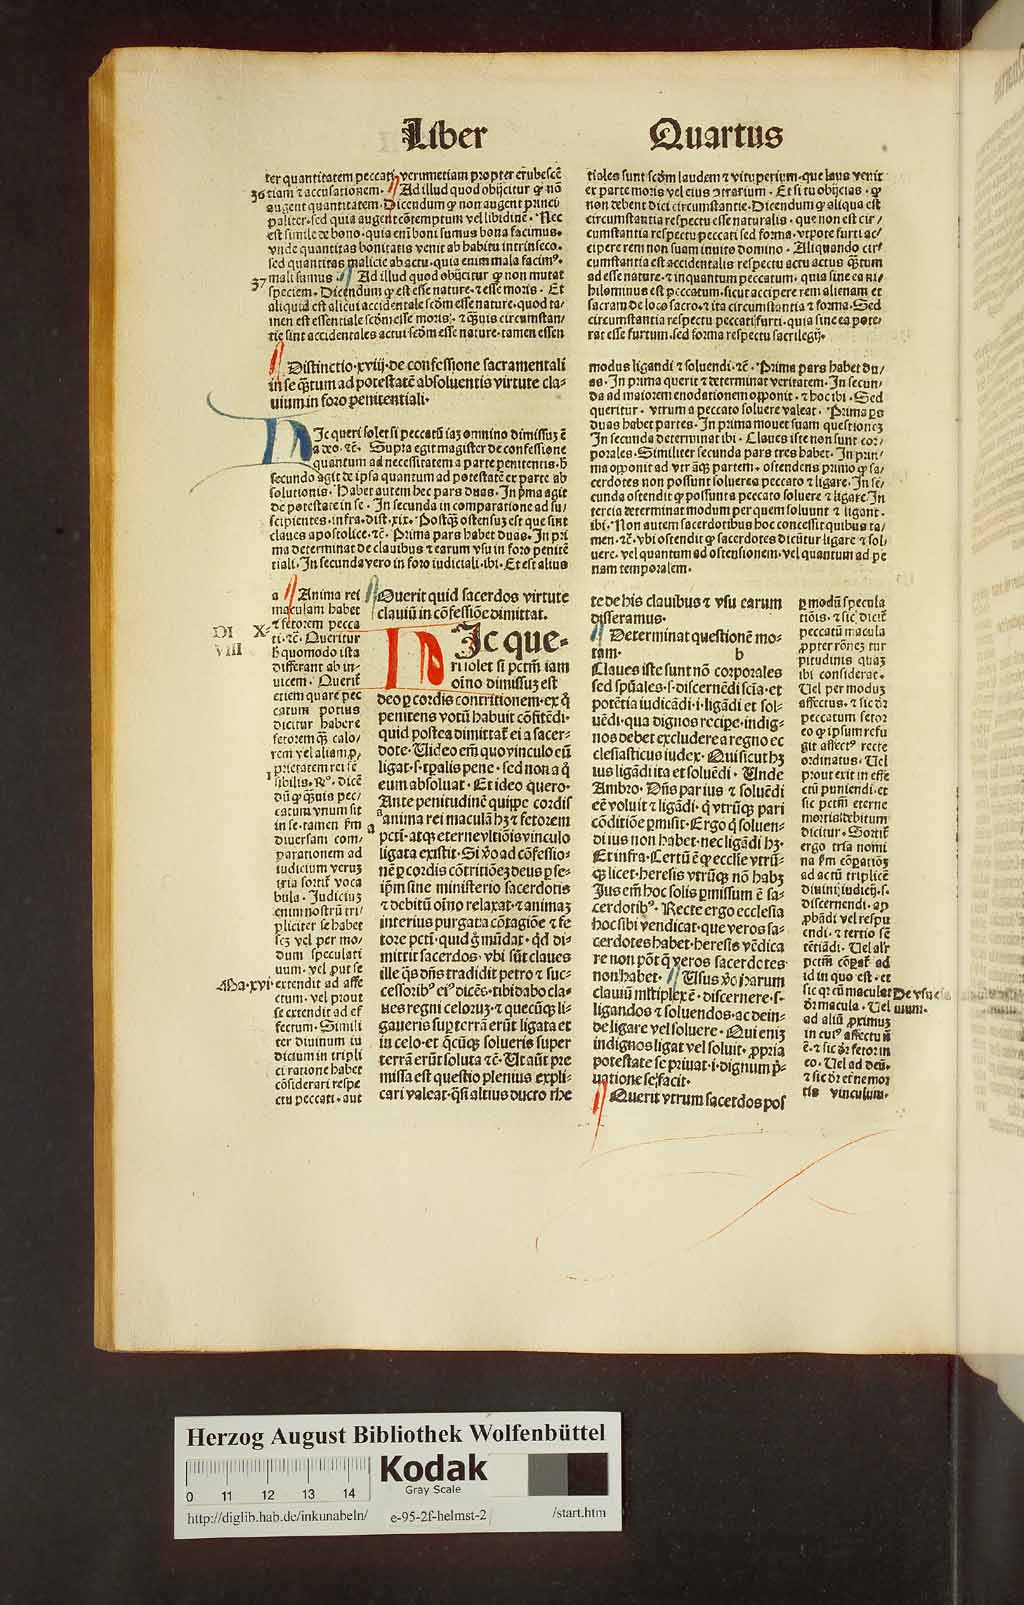 Liber Quartus
ter quantitatem peccati verumetiam propter erubescē
36 tiam ⁊ accusationem. Ad illud quod obijcitur ꝙ nō
augent quantitatem. Dicendum ꝙ non augent princi
paliter. sed quia augent cōtemptum vel libidinē. Nec
est simile de bono. quia eni boni sumus bona facimus.
vnde quantitas bonitatis venit ab habitu intrinseco.
sed quantitas malicie ab actu. quia enim mala facimꝰ.
mali sumus. Ad illud quod obijcitur ꝙ non mutat
37 speciem. Dicendum ꝙ est esse nature. ⁊ esse moris. Et
aliquid est alicui accidentale scd̄m esse nature. quod ta/
men est essentiale scd̄m esse moris. ⁊ qꝫuis circumstan/
tie sint accidentales actui scd̄m esse nature. tamen essen
tiales sunt scd̄m laudem ⁊ vituperium. que laus venit
ex parte moris vel eius ɔtrarium. Et si tu obijcias. ꝙ
non debent dici circumstantie. Dicendum ꝙ aliqua est
circumstantia respectu esse naturalis. que non est cir/
cumstantia respectu peccati sed forma. vtpote furti ac/
cipere rem non suam inuito domino. Aliquando cir/
cumstantia est accidentalis respectu actu actus qꝫtum
ad esse nature. ⁊ inquantum peccatum. quia sine ea ni/
hilominus est peccatum. sicut accipere rem alienam et
sacram de loco sacro. ⁊ ita circumstantia ⁊ forma. Sed
circumstantia respectu peccati furti. quia sine ea pote/
rat esse furtum. sed forma respectu sacrilegij.
Distinctio .xviij. de confessione sacramentali
in se qꝫtum ad potestatē absoluentis virtute cla-
uium in foro penitentiali.
HIc queri solet si peccatū iaꝫ omnino dimissuꝫ ē
a deo. ⁊c̄. Supra egit magister de confessione
quantum ad necessitatem a parte penitentis. h̄
secundo agit de ipsa quantum ad potestatē ex parte ab
solutionis. Habet autem hec pars duas. In p̄ma agit
de potestate in se. In secunda in comparatione ad su/
scipientes. infra. dist. xix. Postqꝫ ostensuꝫ est que sint
claues apostolice. ⁊c̄. Prima pars habet duas. In pri
ma determinat de clauibus ⁊ earum vsu in foro penitē
tiali. In secunda vero in foro iudiciali. ibi. Et est alius
modus ligandi ⁊ soluendi. ⁊c̄. Prima pars habet du/
as. In prima querit ⁊ determinat veritatem. In secun/
da ad maiorem enodationem opponit. ⁊ hoc ibi. Sed
queritur. vtrum a peccato soluere valeat. Prima ps
duas habet partes. In prima mouet suam questioneꝫ
In secunda determinat ibi. Claues iste non sunt cor/
porales. Similiter secunda pars tres habet. In pri/
ma opponit ad vtrāqꝫ partem. ostendens primo ꝙ sa/
cerdotes non possunt soluere a peccato ⁊ ligare. In se/
cunda ostendit ꝙ possunt a peccato soluere ⁊ ligare. In
tercia determinat modum per quem soluunt ⁊ ligant.
ibi. Non autem sacerdotibus hoc concessit quibus ta/
men. ⁊c̄. vbi ostendit ꝙ sacerdotes dicūtur ligare ⁊ sol/
uere. vel quantum ad ostensionem. vel quantum ad pe
nam temporalem.
a Anima rei
maculam habet
⁊ fetorem pecca
ti. ⁊c̄. Queritur
h̄ quomodo ista
differant ab in/
uicem. Querit̄
etiem quare pec
catum potius
dicitur habere
fetorem qꝫ calo/
rem vel aliam p/
prietatem rei sē
1 sibilis. Rꝰ. dicē
dū ꝙ qꝫuis pec/
catum vnum sit
in se. tamen fm̄
diuersam com/
parationem ad
iudicium veruꝫ
tria sortit̄ voca
bula. Judiciuꝫ
enim nostrū tri/
pliciter se habet
scꝫ vel per mo/
dum speculati
uum. vel put se
extendit ad affe
ctum. vel prout
se extendit ad ef
fectum. Simili
ter diuinum iu
dicium in tripli
ci ratione habet
cōsiderari respe
ctu peccati. aut
DI X-
VIII
Ma. xvi.
Querit quid sacerdos virtute
clauiū in cōfessiōe dimittat.
HIc que-
ri solet si pctm̄ iam
oīno dimissuꝫ est
deo ꝑ cordis contritionem. ex q̄
penitens votū habuit cōfitēdi.
quid postea dimittat̄ ei a sacer-
dote. Uideo em̄ quo vinculo eū
ligat. s. tꝑalis pene. sed non a q̄
eum absoluat. Et ideo quero.
Ante penitudinē quippe cordis
a anima rei maculā hꝫ ⁊ fetorem
pcti. atqꝫ eterne vltiōis vinculo
ligata existit. Si v̄o ad cōfessio-
nē ꝑ cordis cōtritiōeꝫ deus ꝑ se-
ip̄m sine ministerio sacerdotis
⁊ debitū oīno relaxat. ⁊ animaꝫ
interius purgata cōtagiōe ⁊ fe
tore pcti. quid g̊ mūdat. qd̄ di-
mittit sacerdos. vbi sūt claues
ille qꝫ dn̄s tradidit petro ⁊ suc-
cessoribꝰ eiꝰ dicēs. tibi dabo cla-
ues regni celoruꝫ. ⁊ quecūqꝫ li-
gaueris sup terrā erūt ligata et
in celo. et qcūqꝫ solueris super
terrā erūt soluta ⁊c̄. Ut aūt pre
missa est questio plenius expli-
cari valeat. qsi altius ducto rhe
te de his clauibus ⁊ vsu earum
disseramus.
Determinat questionē mo-
tam. b
Claues iste sunt nō corporales
sed spūales. s. discernēdi scīa. et
potētia iudicādi. i. ligādi et sol-
uēdi. qua dignos recipe. indig-
nos debet excludere a regno ec
clesiasticus iudex. Qui sicut hꝫ
ius ligādi ita et soluēdi. Unde
Ambro. Dn̄s par ius ⁊ soluēdi
eē voluit ⁊ ligādi. q̄ vtrūqꝫ pari
cōditiōe pmisit. Ergo q̄ soluen-
di ius non habet. nec ligādi hꝫ.
Et infra. Certū ē ꝙ ecclie vtrū-
qꝫ licet. heresis vtrūqꝫ nō habꝫ
Jus em̄ hoc solis pmissum ē sa-
cerdotibꝰ. Recte ergo ecclesia
hoc sibi vendicat. que veros sa-
cerdotes habet. heresis vēdica
re non pōt q̄ veros sacerdotes
non habet. Usus v̄o harum
clauiū mltiplex ē. discernere. s.
ligandos ⁊ soluendos. ac dein-
de ligare vel soluere. Qui eniꝫ
indignos ligat vel soluit. ꝓpria
potestate se priuat. i. dignum p̄-
uatione se facit.
Querit vtrum sacerdos pos
ꝑ modū specula
tiōis. ⁊ sic dicit̄
peccatū macula
ꝓpter rōneꝫ tur
pitudinis quaꝫ
ibi considerat.
Uel per moduꝫ
affectus. ⁊ sic dr̄
peccatum fetor
eo ꝙ ipsum refu
git affectꝰ recte
ordinatus. Uel
prout exit in effe
ctū puniendi. et
sic pctm̄ eterne
mortis debitum
dicitur. Sortit̄
ergo tria nomi
na fm̄ cōpatiōꝫ
ad actū triplicē
diuini iudicij. s.
discernendi. ap
ꝓbādi vel respu
endi. ⁊ tertio sē
tētiādi. Uel alr̄
pctm̄ cōpat̄ ad
id in quo est. et
sic qr eū maculat
dr̄ macula. Uel
ad aliū ꝓximuꝫ
in cuiꝰ affectu n̄
ē. ⁊ sic dr̄ fetor in
eo. Uel ad deū.
⁊ sic dr̄ eterne mor
tis vinculum.
De vsu cla
uium.
Herzog August Bibliothek Wolfenbüttel
Kodak
Gray Scale
0 11 12 13 14
http://diglib.hab.de/inkunabeln/ e-95-2f-helmst-2 /start.htm